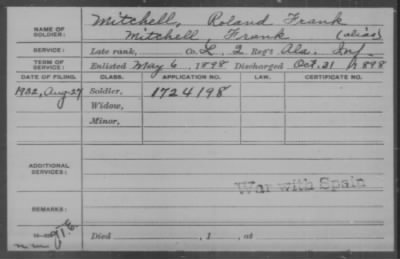 NAME OF SOLDIER: Mitchell, Roland Frank
Mitchell, Frank (alias)
SERVICE: Late rank, Co. L, 2 Reg't Ala. Inf
TERM OF SERVICE: Enlisted May 6, 1898 Discharged Oct. 31, 1898
DATE OF FILING. CLASS. APPLICATION NO. LAW. CERTIFICATE NO.
1932, Aug-27 Soldier, 1724198
Widow,
Minor,
ADDITIONAL SERVICES:
War with Spain
REMARKS:
Died , 1 , at